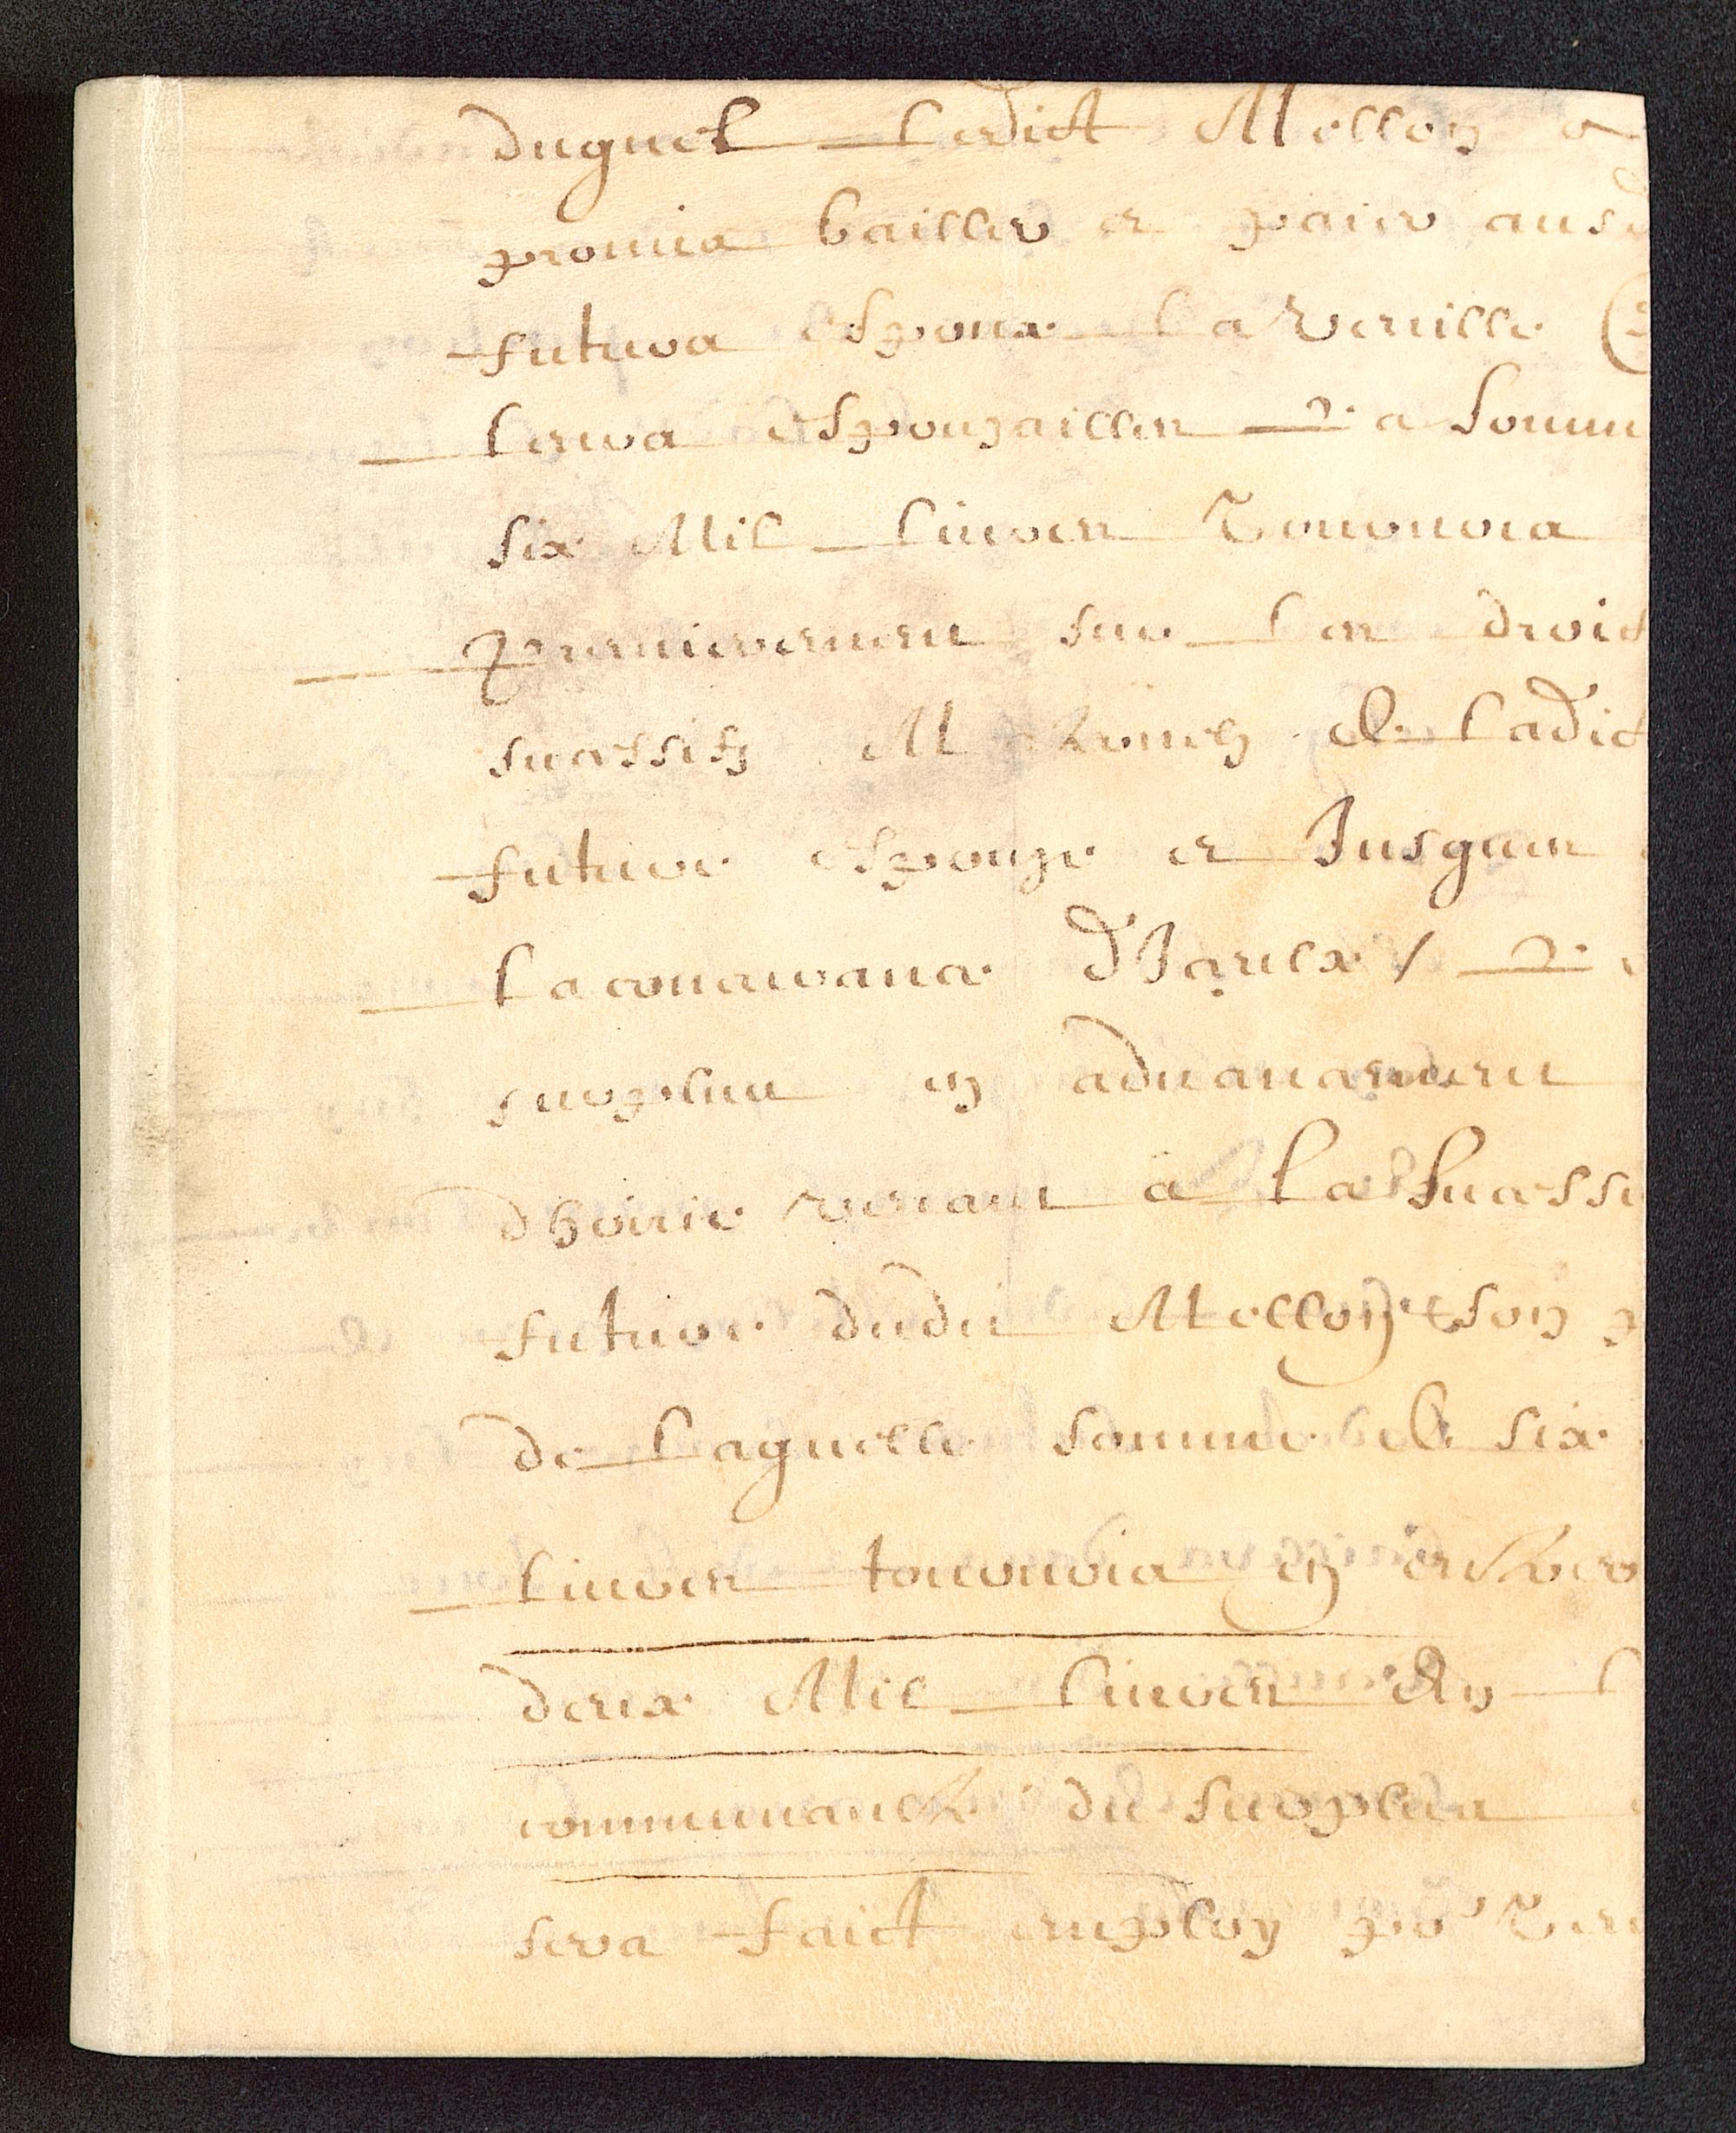 duquel ledict Mellon a
promis bailler et paier ausd
futurs espoux la veuille
leurs espouzailles la somm
six Mil livres Tournois
Premierement sur les droict
successifz M de ladict
future espouze et Jusques
la concurrance d'Iceux / Le
surplus en advancement
dhoirie venant a la Success
future dudit Mellon & son p
de laquelle somme de six
livres tournois en entrer
deux Mil livres En l
communaulté du surplus
sera faict employ po^r